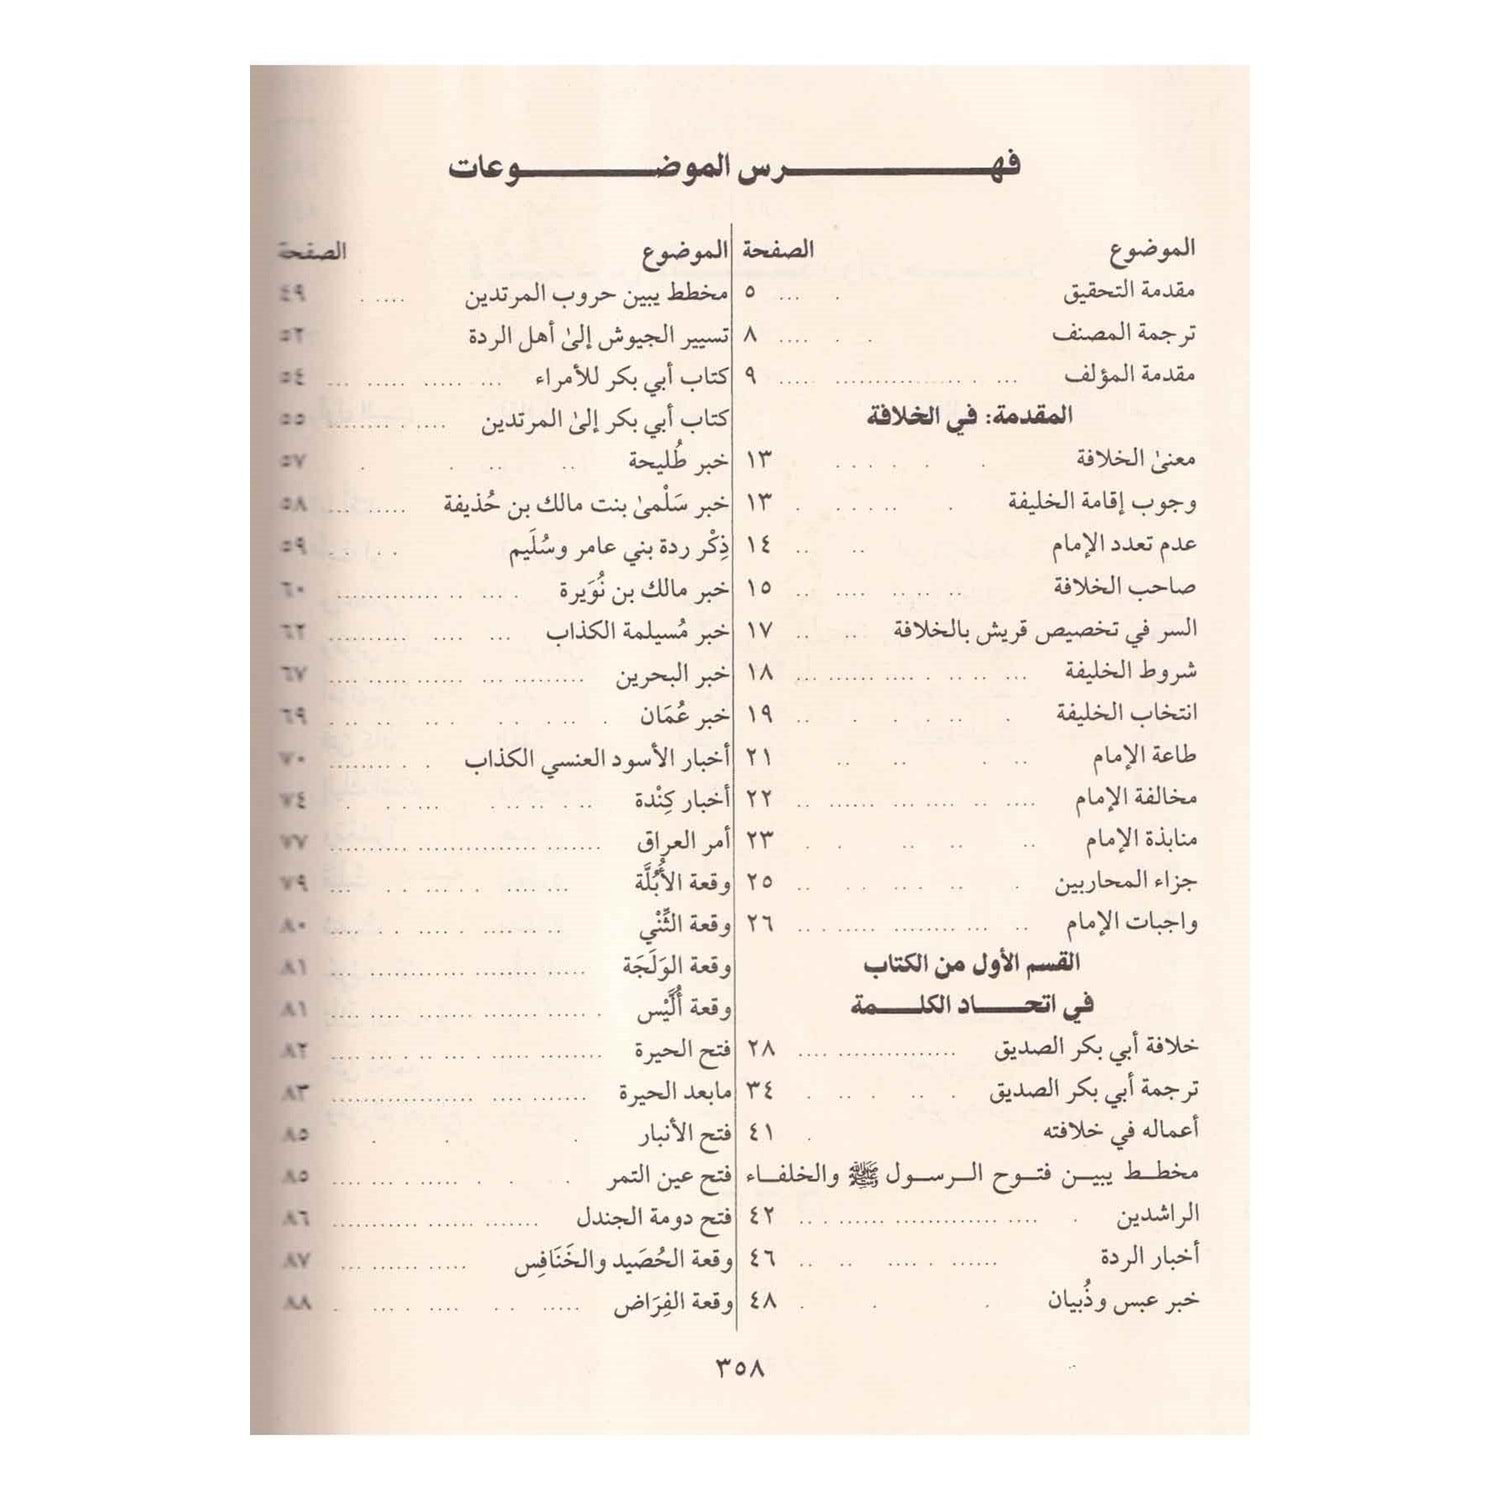 فهرس الموضوعات
الموضوع الصفحة
مقدمة التحقيق ٥
ترجمة المصنف ٨
مقدمة المؤلف ٩
المقدمة: في الخلافة
معنىٰ الخلافة ١٣
وجوب إقامة الخليفة ١٣
عدم تعدد الإمام ١٤
صاحب الخلافة ١٥
السر في تخصيص قريش بالخلافة ١٧
شروط الخليفة ١٨
انتخاب الخليفة ١٩
طاعة الإمام ٢١
مخالفة الإمام ٢٢
منابذة الإمام ٢٣
جزاء المحاربين ٢٥
واجبات الإمام ٢٦
القسم الأول من الكتاب
في اتحاد الكلمة
خلافة أبي بكر الصديق ٢٨
ترجمة أبي بكر الصديق ٣٤
أعماله في خلافته ٤١
مخطط يبين فتوح الرسول ﷺ والخلفاء
الراشدين ٤٢
أخبار الردة ٤٦
خبر عبس وذُبيان ٤٨
الموضوع الصفحة
مخطط يبين حروب المرتدين ٤٩
تسيير الجيوش إلىٰ أهل الردة ٥٢
كتاب أبي بكر للأمراء ٥٤
كتاب أبي بكر إلىٰ المرتدين ٥٥
خبر طُليحة ٥٧
خبر سَلْمىٰ بنت مالك بن حُذيفة ٥٨
ذِكْر ردة بني عامر وسُلَيم ٥٩
خبر مالك بن نُوَيرة ٦٠
خبر مُسيلمة الكذاب ٦٢
خبر البحرين ٦٧
خبر عُمَان ٦٩
أخبار الأسود العنسي الكذاب ٧٠
أخبار كِنْدة ٧٤
أمر العراق ٧٧
وقعة الأُبُلَّة ٧٩
وقعة الثِّنْي ٨٠
وقعة الوَلَجَة ٨١
وقعة أُلَّيْس ٨١
فتح الحيرة ٨٢
مابعد الحيرة ٨٣
فتح الأنبار ٨٥
فتح عين التمر ٨٥
فتح دومة الجندل ٨٦
وقعة الحُصَيد والخَنَافِس ٨٧
وقعة الفِرَاض ٨٨
٣٥٨